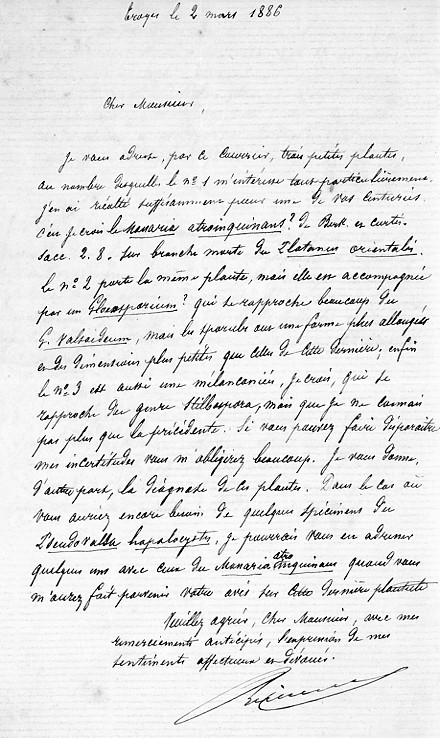 Troyes le 2 mars 1886
Cher Monsieur,
Je vous adresse, par ce courrier, trois petites plantes,
au nombre desquelles le nº 1 m'intéresse tout particulièrement.
j'en ai récolté suffisamment pour une de vos centuries.
c'est je crois le Massaria atroinquinans? de Berk. et Curtis.
Sacc. 2. 8. sur branche morte du Platanus orientalis.
Le nº 2 porte la même plante, mais elle est accompagnée
par un Gloeosporium? qui se rapproche beaucoup du
G. Valsoideum, mais les sporules ont une forme plus allongées
et des dimensions plus petites que celles de cette dernière, enfin
le nº 3 est aussi une mélanconiée, je crois, qui se
rapproche du genre Stilbospora, mais que je ne connais
pas plus que la précédente. Si vous pouvez faire disparaitre
mes incertitudes vous m'obligerez beaucoup. Je vous donne,
d'autre part, la diagnose de ces plantes. Dans le cas où
vous auriez encore besoin de quelques spécimens du
Pseudovalsa hapalocystis, je pourrais vous en adresser
quelques uns avec ceux du Massaria atroinquinans quand vous
m'aurez fait parvenir votre avis sur cette dernière plantule
Veuillez agréer, Cher Monsieur, avec mes
remerciements anticipés, l'expression de mes
sentiments affectueux et dévoués.